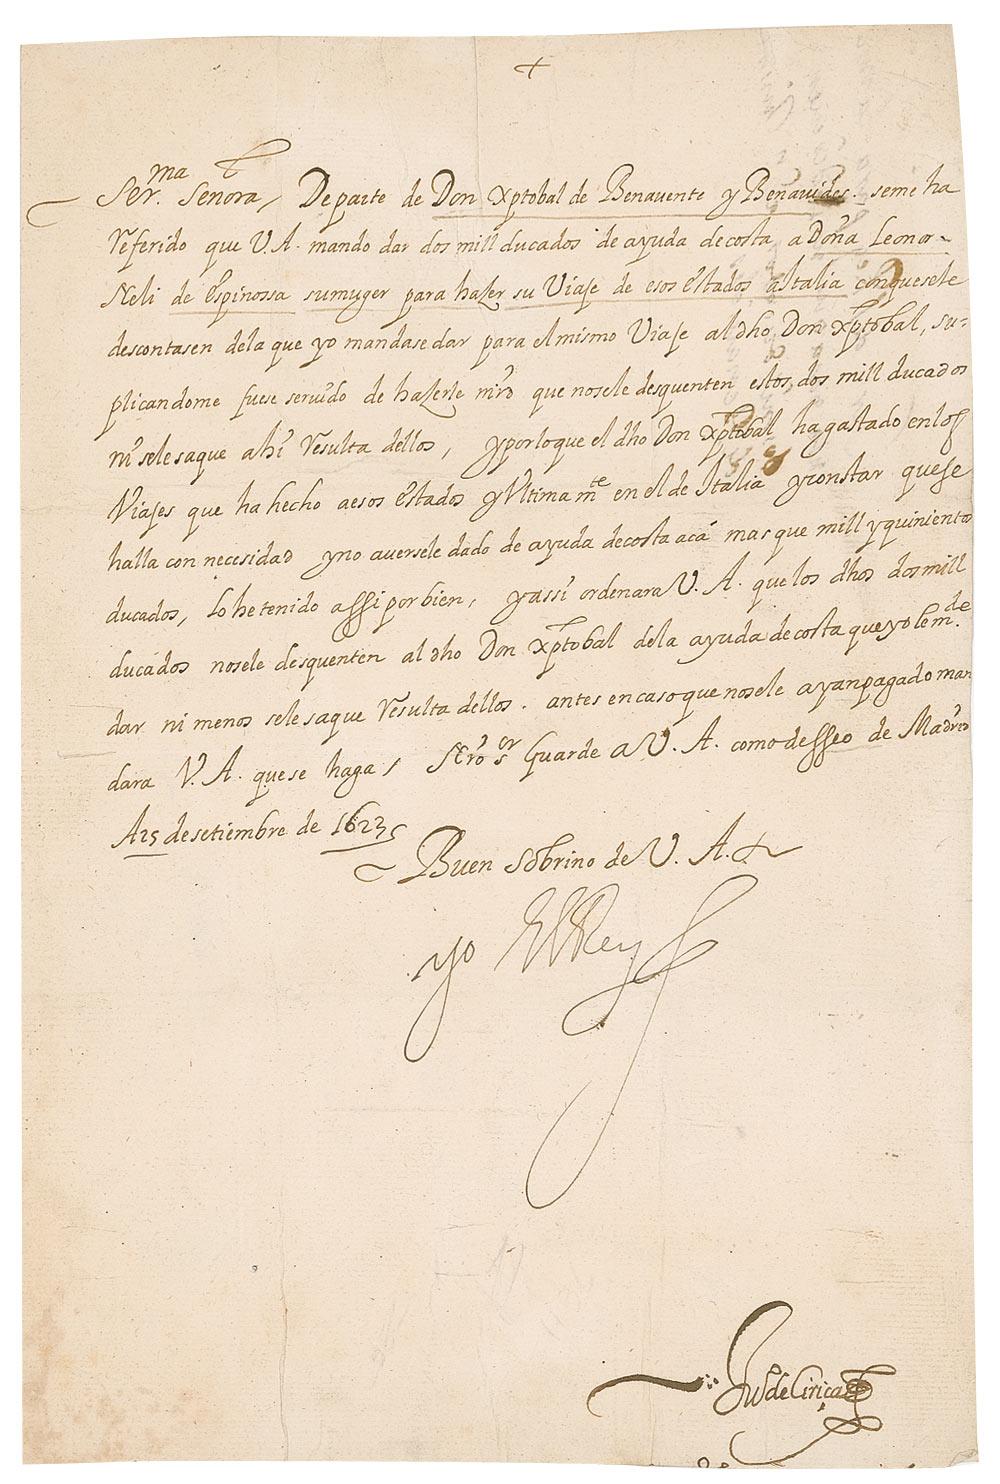 +
Ser.ma Senora, De parte de Don Xptobal de Benauente y Benauides. seme ha
referido que V.A. mando dar dos mill ducados de ayuda de costa a Doña Leonor
Neli de Espinossa sumuger para hazer su Viaje de esos estados a Italia conquesele
descontasen dela que yo mandase dar para el mismo Viaje al dho Don Xptobal, su=
plicandome fuese seruido de hazerle mrd que nosele desquenten estos dos mill ducados
ni sele saque ahi resulta dellos, y por lo que el dho Don Xptobal ha gastado en los
Viajes que ha hecho a esos estados y Ultimam.te en el de Italia y constar que se
halla con necesidad y no auersele dado de ayuda de costa acá mas que mill y quinientos
ducados, Lo he tenido assi por bien, y assi ordenara V.A. que los dhos dos mill
ducados nosele desquenten al dho Don Xptobal dela ayuda de costa que yo le m.de
dar ni menos sele saque resulta dellos. antes en caso que nosele ayan pagado man
dara V.A. que se haga, Nro s.or Guarde a V.A. como desseo de Madrid
A 25 de setiembre de 1623
Buen Sobrino de V.A.
yo El Rey
Ju° de Ciriça